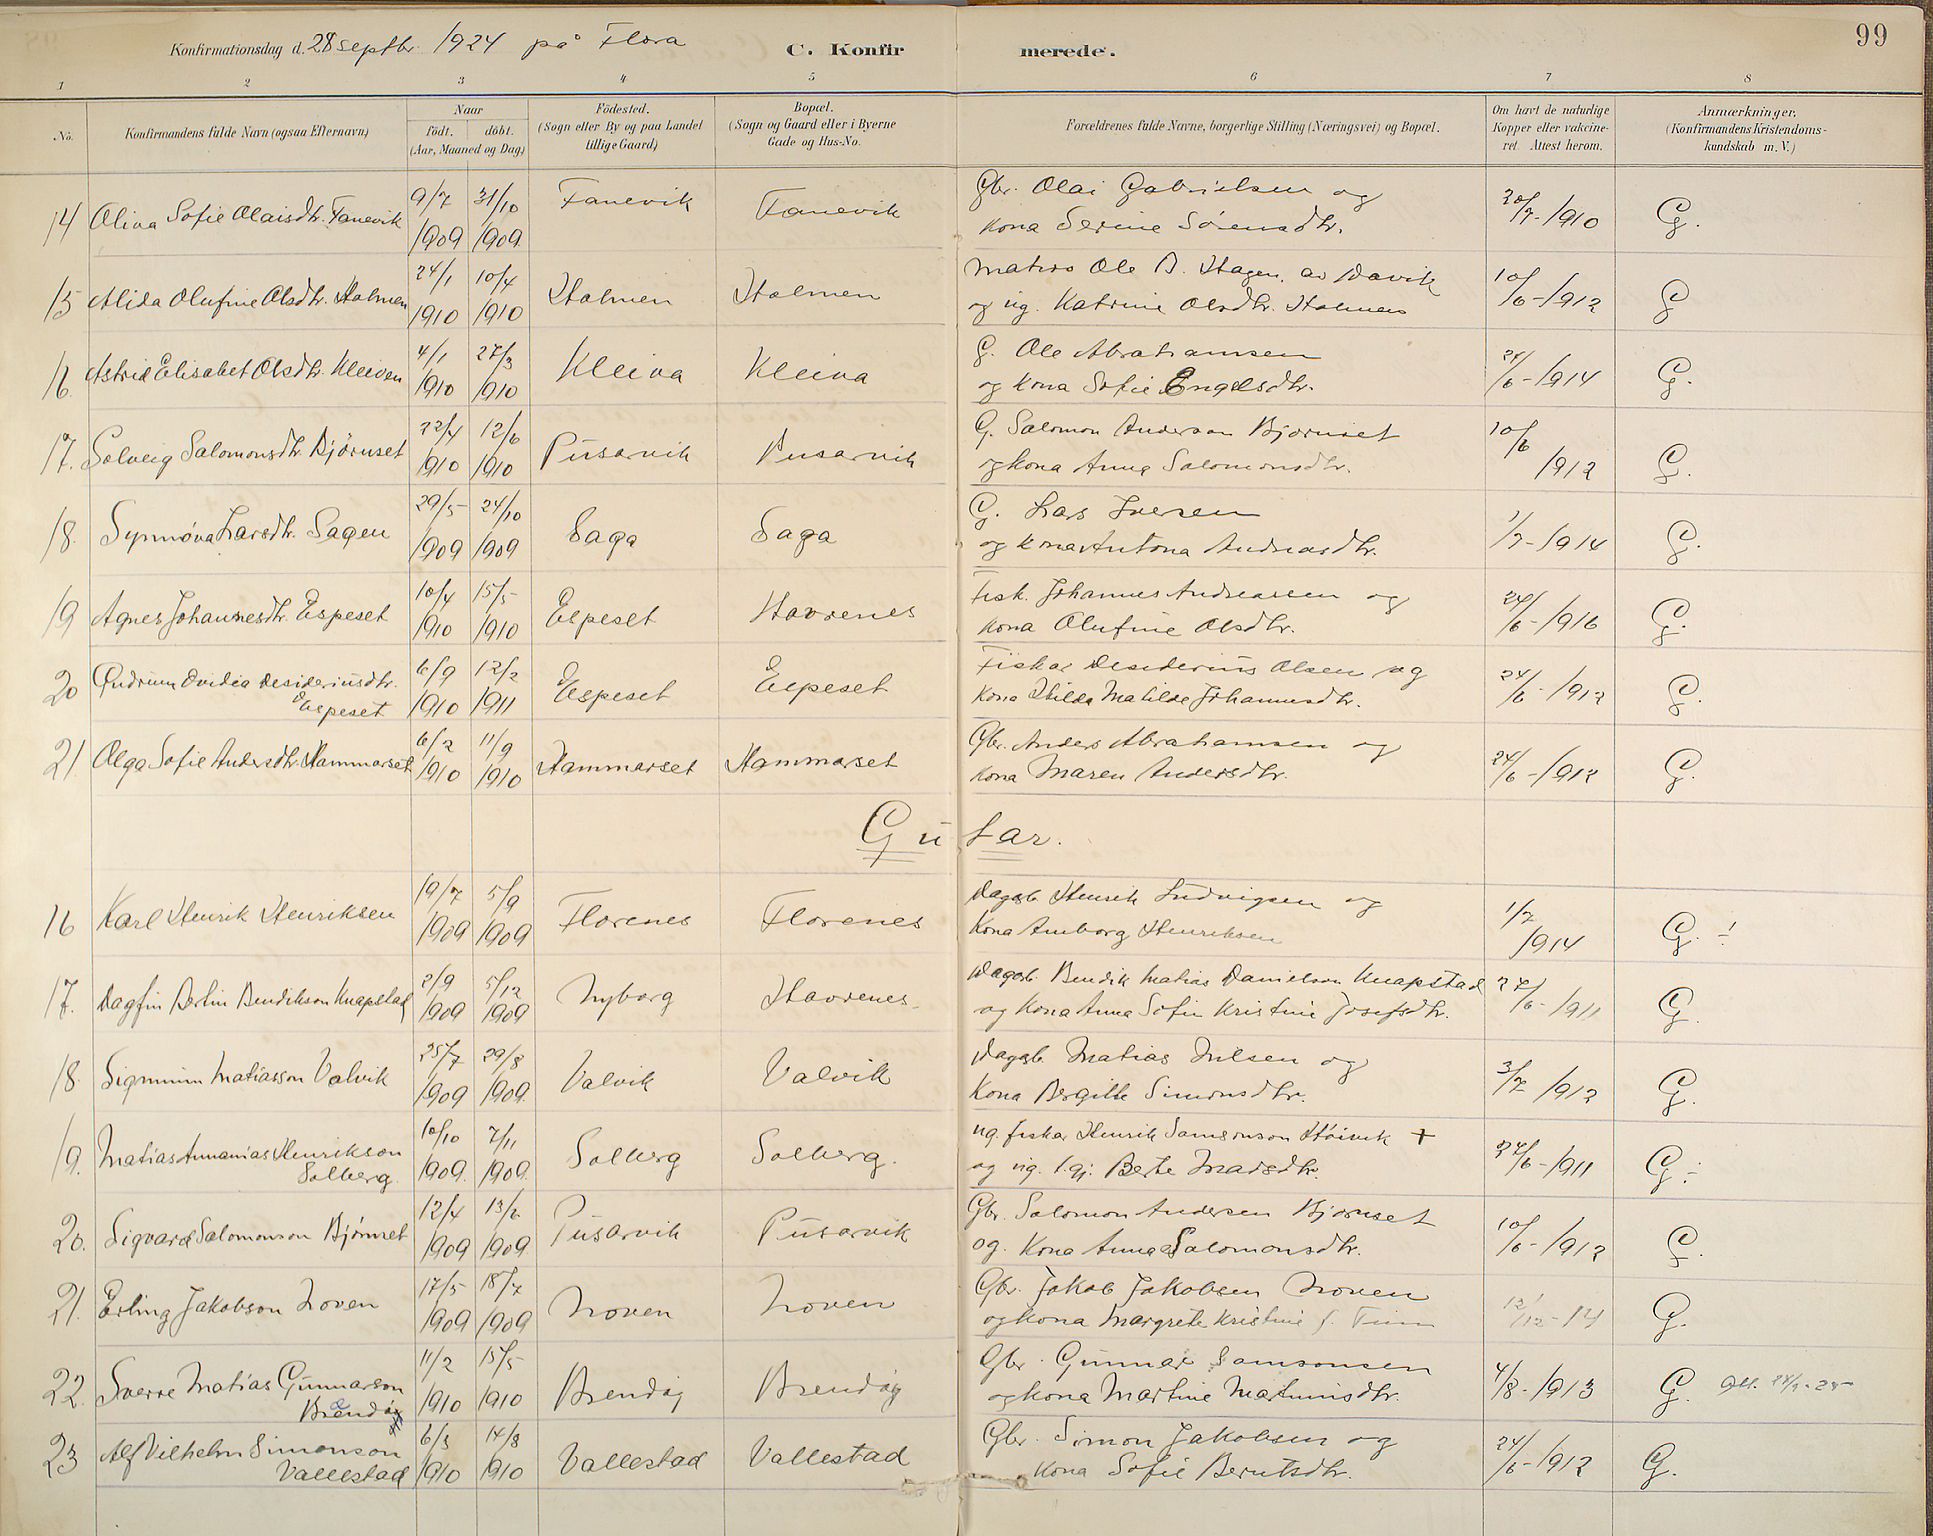 Konfirmationsdag d. 28 septbr. 1924 på Flora C. Konfirmerede. 99
1 2 3 4 5 6 7 8
No. Konfirmandens fulde Navn (ogsaa Efternavn) Naar födt. döbt. (Aar, Maaned og Dag) Födested. (Sogn eller By og paa Landet tillige Gaard) Bopæl. (Sogn og Gaard eller i Byerne Gade og Hus-No. Forældrenes fulde Navne, borgerlige Stilling (Næringsvei) og Bopæl. Om havt de naturlige Kopper eller vakcineret. Attest herom. Anmærkninger. (Konfirmandens Kristendomskundskab m. V.)
14 Oliva Sofie Olaisdtr. Fanevik 9/7 1909 31/10 1909 Fanevik Fanevik Gbr. Olai Gabrielsen og
kona Serine Sörensdtr. 20/7-1910 G.
15 Alida Olufine Olsdtr. Holmen 24/1 1910 10/4 1910 Holmen Holmen Matros Ole B. Hagen, av Davik
og ug. Katrine Olsdtr. Holmen 10/6-1912 G
16. Astrid Elisabet Olsdtr. Kleiven 4/1 1910 27/3 1910 Kleiva Kleiva G. Ole Abrahamsen
og kona Sofie Engelsdtr. 24/6-1914 G.
17. Solveig Salomonsdtr. Björnset 22/4 1910 12/6 1910 Pusarvik Pusarvik G. Salomon Anderson Bjornset
og kona Anna Salomonsdtr. 10/6 1912 G.
18. Synnöva Larsdtr. Sagen 29/5 1909 24/10 1909 Saga Saga G. Lars Iversen
og kona Antona Andreasdtr. 1/7-1914 G.
19 Agnes Johannesdtr. Espeset 10/4 1910 15/5 1910 Espeset Havrenes Fisk. Johannes Andreassen og
kona Olufine Olsdtr. 24/6-1916 G.
20 Gudrunn Ovidia Desideriusdtr.
Espeset 6/9 1910 12/2 1911 Espeset Espeset Fiskar Desiderius Olsen og
kona Hilda Matilde Johannesdtr. 24/6-1912 G.
21. Olga Sofie Andersdtr. Hammarset 6/2 1910 11/9 1910 Hammarset Hammarset Gbr. Anders Abrahamsen og
kona Maren Andersdtr. 24/6-1912 G.
Gutar.
16 Karl Henrik Henriksen 19/7 1909 5/9 1909 Florenes Florenes Dagsb. Henrik Ludvigsen og
Kona Amborg Henriksen 1/7 1914 G. ÷
17. Dagfin Berlin Bendikson Knapstad 2/9 1909 5/12 1909 Nyborg Havrenes Dagsb. Bendik Matias Danielson Knapstad
og kona Anna Sofie Kristine Josefsdtr. 27/6-1911 G.
18. Sigmunn Matiasson Valvik 25/7 1909 29/8 1909 Valvik Valvik Dagsb. Matias Nilsen og
Kona Bergitte Simonsdtr. 3/7 1912 G.
19. Matias Annanias Henrikson
Solberg. 10/10 1909. 7/11 1909. Solberg Solberg. ug. fiskar Henrik Samsonson Höivik +
og ug. Berte Madsdtr. 24/6-1911 G. ÷
20. Sigvard Salomonson Björnset 12/4 1909 13/6 1909 Pusarvik Pusarvik Gbr. Salomon Andersen Bjornset
og. kona Anna Salomonsdtr. 10/6-1912 G.
21. Erling Jakobson Noven 17/5 1909 18/7 1909 Noven Noven Gbr. Jakob Jakobsen Noven
og kona Margrete Kristine f. 12/12-14 G.
22. Sverre Matias Gunnarson
Brendöy 11/2 1910 15/5 1910 Brendöy Brendöy Gbr. Gunnar Samsonsen
og kona Martine Martinusdtr. 4/8-1913 G.
23 Alf Vilhelm Simonson
Vallestad 6/3 1910 14/8 1910 Vallestad Vallestad Gbr. Simon Jakobsen og
kona Sofie Berntsdtr. 24/6-1912 G.